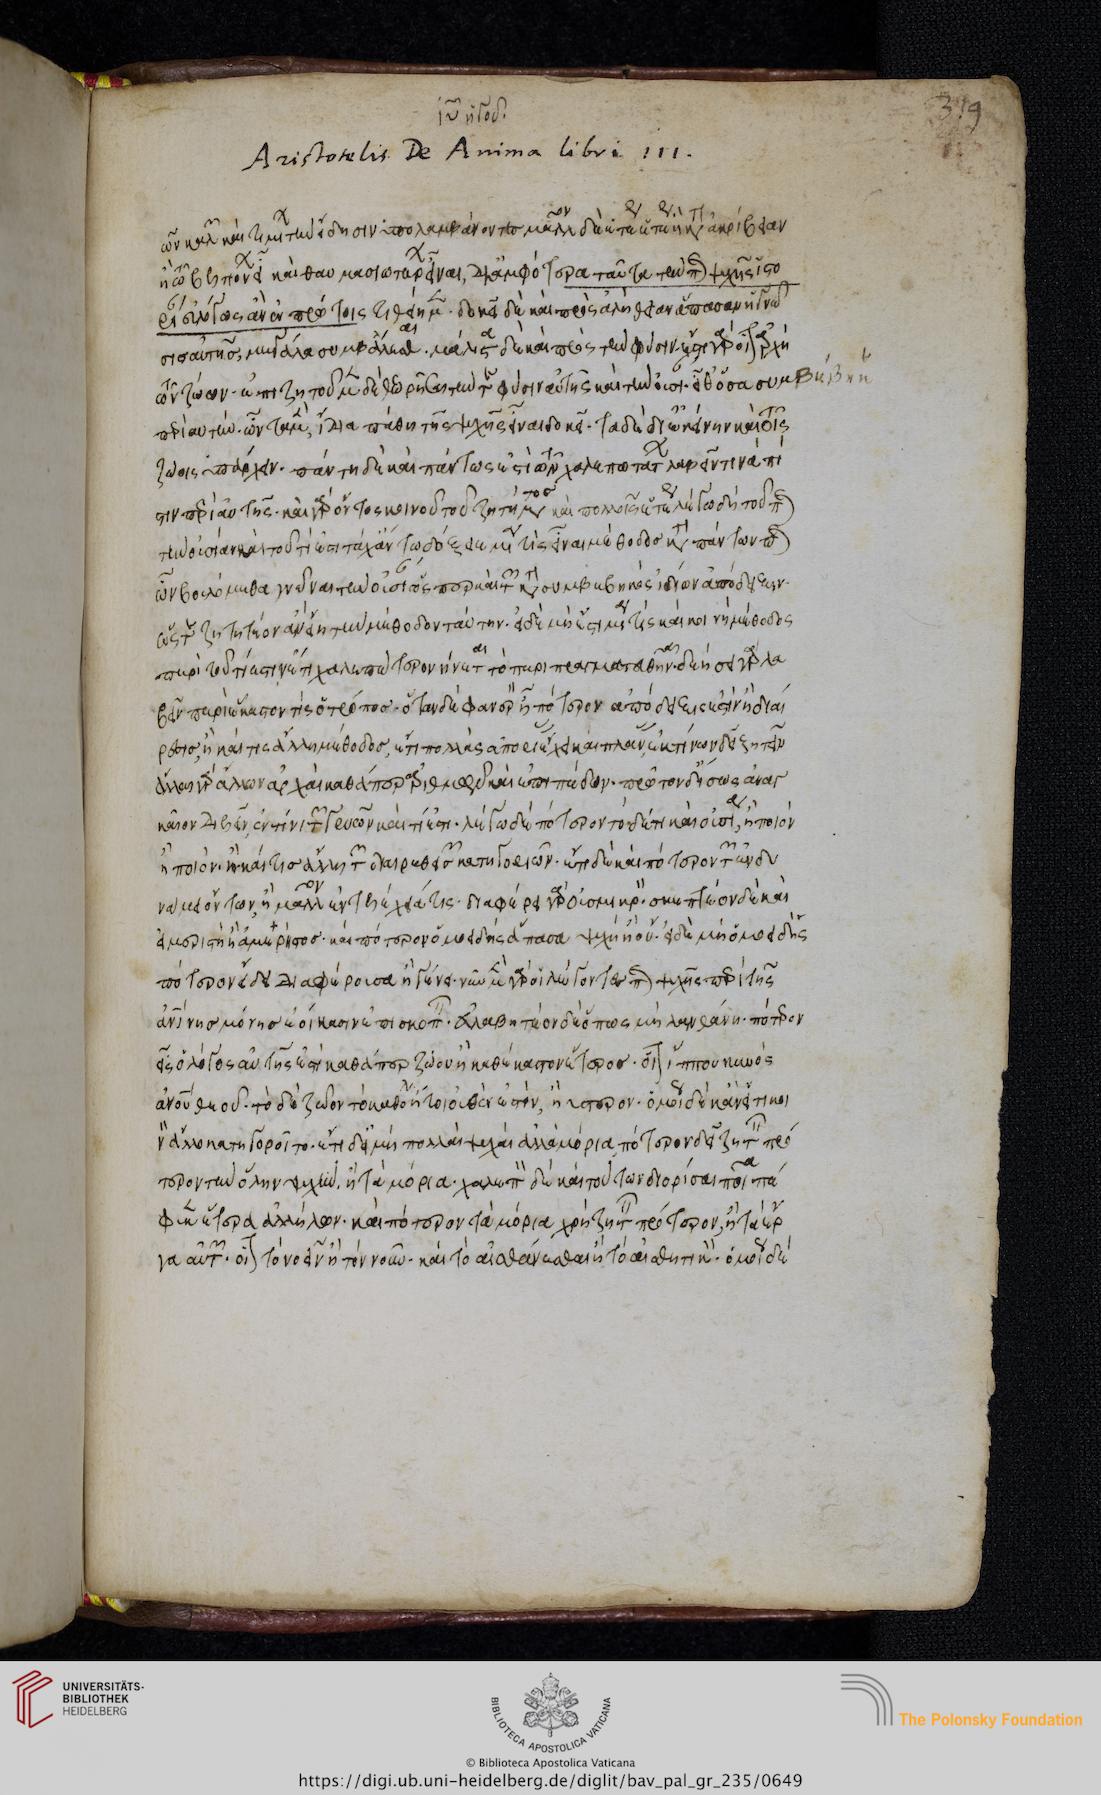 ἰῦ ἡγοῦ.
Aristotelis De Anima libri III.
319
ῶν καλῶν καὶ τιμίων τὴν εἴδησιν ὑπολαμβάνοντες μᾶλλον δὲ ἑτέραν ἑτέρας ἢ κατ' ἀκρίβειαν
ἢ τῷ βελτιόνων τε καὶ θαυμασιωτέρων εἶναι, δι' ἀμφότερα ταῦτα τὴν περὶ ψυχῆς ἱστο
ρίαν εὐλόγως ἂν ἐν πρώτοις τιθείημεν. δοκεῖ δὲ καὶ πρὸς ἀλήθειαν ἅπασαν ἡ γνῶ
σις αὐτῆς μεγάλα συμβάλλεσθαι. μάλιστα δὲ καὶ πρὸς τὴν φύσιν. ἔστι γὰρ οἷον ἀρχὴ
τῶν ζώων. ἐπιζητοῦμεν δὲ θεωρῆσαι τήν τε φύσιν αὐτῆς καὶ τὴν οὐσίαν. εἶθ' ὅσα συμβέβηκε
περὶ αὐτήν. ὧν τὰ μὲν, ἴδια πάθη τῆς ψυχῆς εἶναι δοκεῖ. τὰ δὲ δι' ἐκείνην καὶ τοῖς
ζώοις ὑπάρχειν. πάντη δὲ καὶ πάντως ἐστὶ τῶν χαλεπωτάτων λαβεῖν τινὰ πί
στιν περὶ αὐτῆς. καὶ γὰρ ὄντος κοινοῦ τοῦ ζητήματος καὶ πολλοῖς ἑτέροις, λέγω δὴ τοῦ περὶ
τὴν οὐσίαν καὶ τοῦ τί ἐστι τάχ' ἄν τω δόξειε μία τις εἶναι μέθοδος κατὰ πάντων περὶ
ὧν βουλόμεθα γνῶναι τὴν οὐσίαν, ὥσπερ καὶ τῶν κατὰ συμβεβηκὸς ἰδίων ἀπόδειξιν.
ὥστε ζητητέον ἂν εἴη τὴν μέθοδον ταύτην. εἰ δὲ μή ἐστι μία τις καὶ κοινὴ μέθοδος
περὶ τοῦ τί ἐστιν, ἔτι χαλεπώτερον γίνεται τὸ πραγματευθῆναι. δεήσει γὰρ λα
βεῖν περὶ ἕκαστον τίς ὁ τρόπος. ὅταν δὲ φανερὸν ᾖ πότερον ἀπόδειξίς ἐστιν ἢ διαί
ρεσις, ἢ καί τις ἄλλη μέθοδος, ἔτι πολλὰς ἀπορίας ἔχει καὶ πλάνας, ἐκ τίνων δεῖ ζητεῖν
ἄλλαι γὰρ ἄλλων ἀρχαὶ καθάπερ ἀριθμῶν καὶ ἐπιπέδων. πρῶτον δ' ἴσως ἀναγ
καῖον διελεῖν, ἐν τίνι τῶν γενῶν καὶ τί ἐστι. λέγω δὲ πότερον τόδε τι καὶ οὐσία, ἢ ποιὸν
ἢ ποσόν. ἢ καί τις ἄλλη τῶν διαιρεθεισῶν κατηγοριῶν. ἔτι δὲ καὶ πότερον τῶν ἐν δυ
νάμει ὄντων, ἢ μᾶλλον ἐντελέχειά τις. διαφέρει γὰρ οὔτι μικρόν. σκεπτέον δὲ καὶ
εἰ μεριστὴ ἢ ἀμερής. καὶ πότερον ὁμοειδὴς ἅπασα ψυχὴ ἢ οὔ. εἰ δὲ μὴ ὁμοειδής
πότερον εἴδει διαφέρουσα ἢ γένει. νῦν μὲν γὰρ οἱ λέγοντες περὶ ψυχῆς περὶ τῆς
ἀνθρωπίνης μόνης ἐοίκασιν ἐπισκοπεῖν. εὐλαβητέον δὲ ὅπως μὴ λανθάνη. πότερον
εἷς ὁ λόγος αὐτῆς ἐστὶ καθάπερ ζώου ἢ καθ' ἕκαστον ἕτερος. οἷον ἵππου κυνὸς
ἀνθρώπου θεοῦ. τὸ δὲ ζῶον τὸ καθόλου ἤτοι οὐθέν ἐστιν, ἢ ὕστερον. ὁμοίως δὲ κἂν εἴ τι κοι
νὸν ἄλλο κατηγοροῖτο. ἔτι δὲ εἰ μὴ πολλαὶ ψυχαὶ ἀλλὰ μόρια, πότερον δεῖ ζητεῖν πρό
τερον τὴν ὅλην ψυχὴν, ἢ τὰ μόρια. χαλεπὸν δὲ καὶ τούτων διορίσαι ποῖα πέ
φυκεν ἕτερα ἀλλήλων. καὶ πότερον τὰ μόρια χρὴ ζητεῖν πρότερον, ἢ τὰ ἔρ
γα αὐτῶν. οἷον τὸ νοεῖν ἢ τὸν νοῦν. καὶ τὸ αἰσθάνεσθαι ἢ τὸ αἰσθητικόν. ὁμοίως δὲ
UNIVERSITÄTS-
BIBLIOTHEK
HEIDELBERG
BIBLIOTECA APOSTOLICA VATICANA
The Polonsky Foundation
© Biblioteca Apostolica Vaticana
https://digi.ub.uni-heidelberg.de/diglit/bav_pal_gr_235/0649